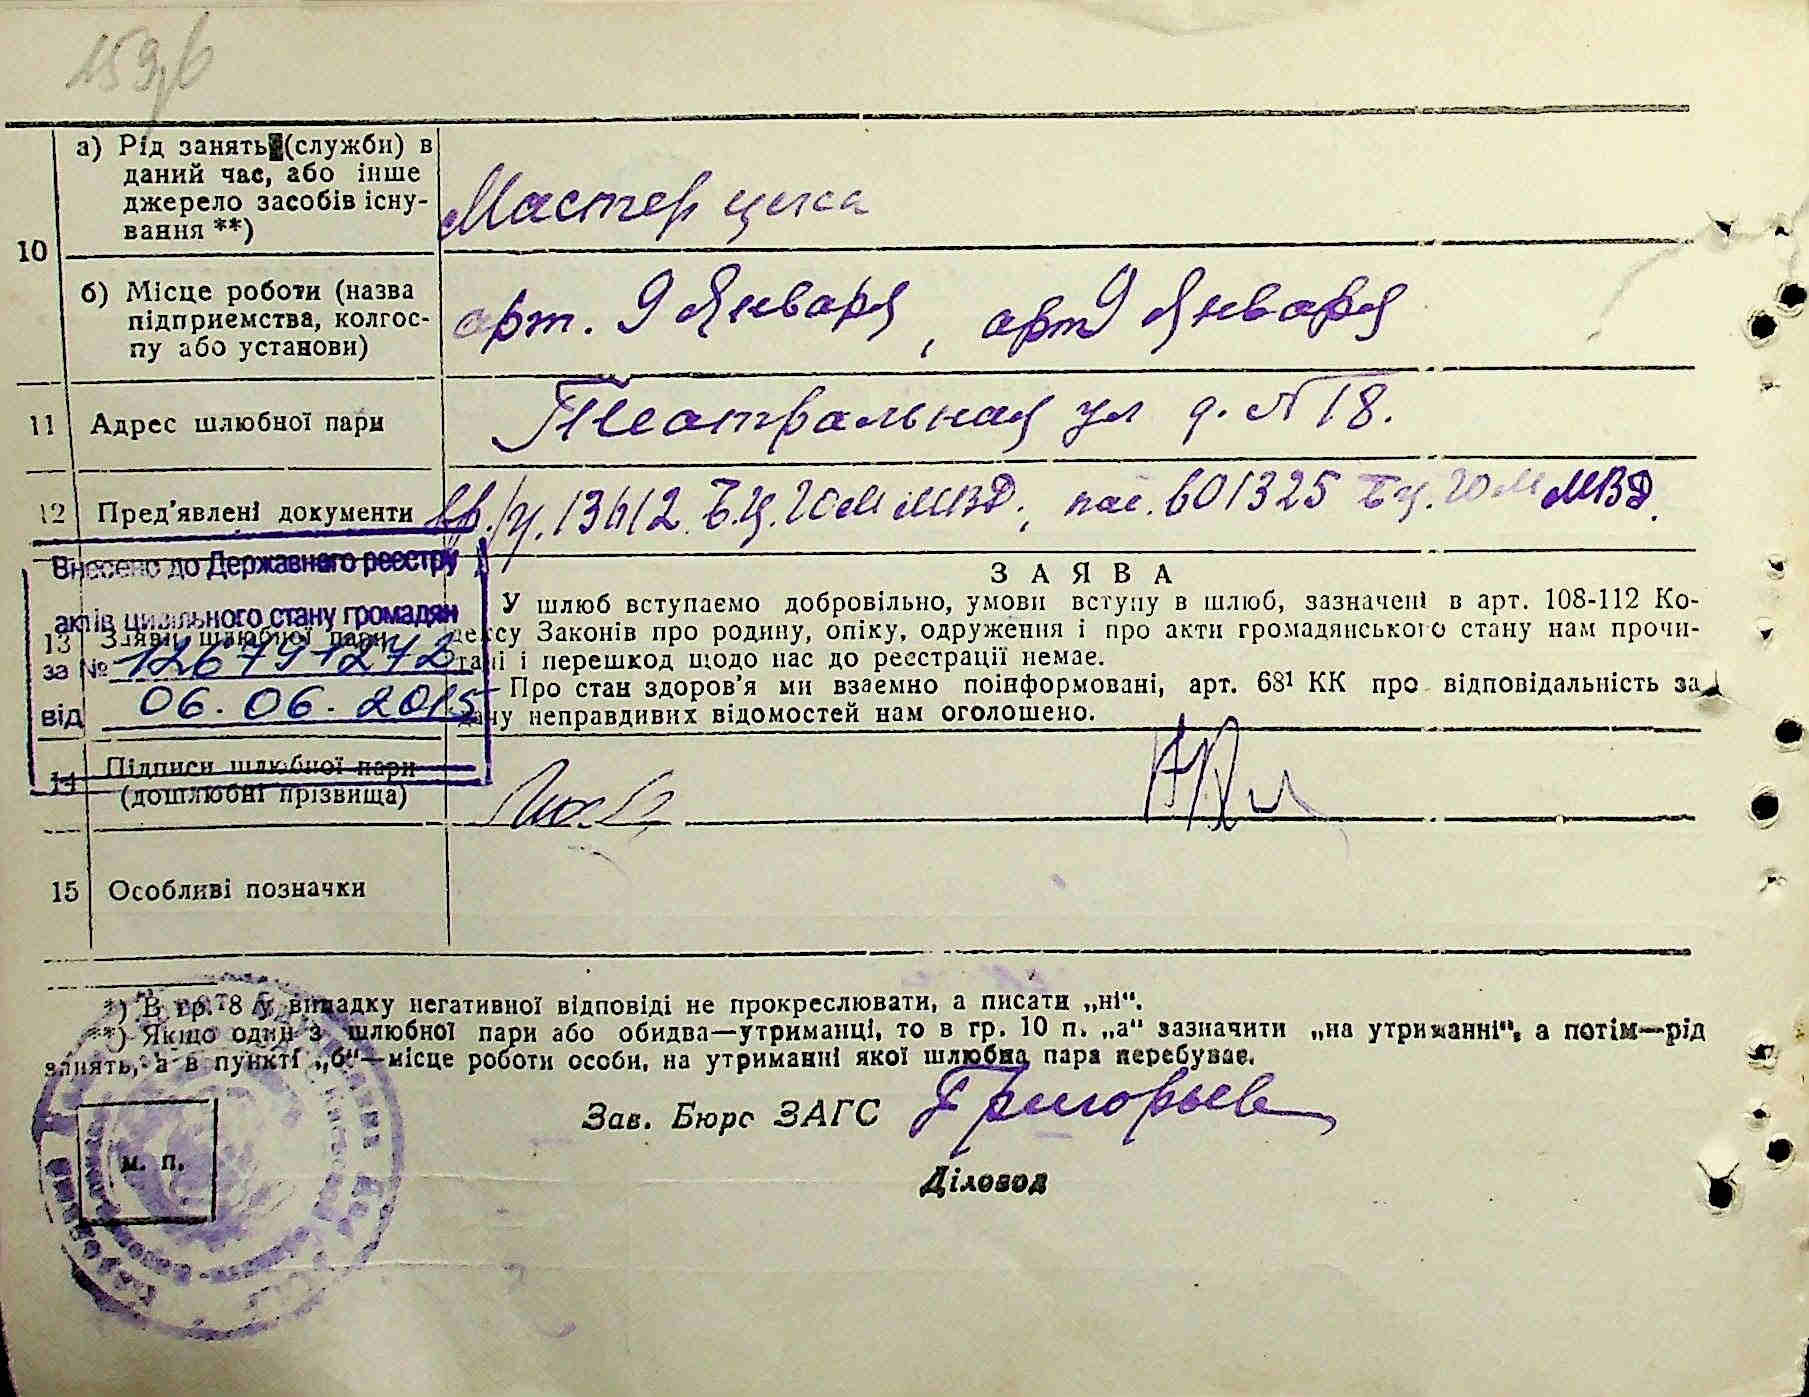 153/6
а) Рід занять (служби) в
даний час, або інше
джерело засобів існу-
вання **)
Мастер цеха
10
б) Місце роботи (назва
підприємства, колгос-
пу або установи)
арт. 9 Января, арт 9 Января
11 Адрес шлюбної пари
Театральная ул д. № 18.
12 Пред'явлені документи
13612 Б.Ц. ГОМ МВД, пас. 601325 Бц. ГОМ МВД.
Внесено до Державного реєстру
актів цивільного стану громадян
за № 12679+272
від 06.06.2015
13 Заяви шлюбної пари
ЗАЯВА
У шлюб вступаємо добровільно, умови вступу в шлюб, зазначені в арт. 108-112 Ко-
дексу Законів про родину, опіку, одруження і про акти громадянського стану нам прочи-
тані і перешкод щодо нас до реєстрації немає.
Про стан здоров'я ми взаємно поінформовані, арт. 68¹ КК про відповідальність за
дачу неправдивих відомостей нам оголошено.
14 Підписи шлюбної пари
(дошлюбні прізвища)
15 Особливі позначки
*) В гр. 8 у випадку негативної відповіді не прокреслювати, а писати „ні“.
**) Якщо один з шлюбної пари або обидва—утриманці, то в гр. 10 п. „а“ зазначити „на утриманні“, а потім—рід
занять, а в пункті „б“—місце роботи особи, на утриманні якої шлюбна пара перебуває.
Зав. Бюро ЗАГС Григорьев
Діловод
м. п.